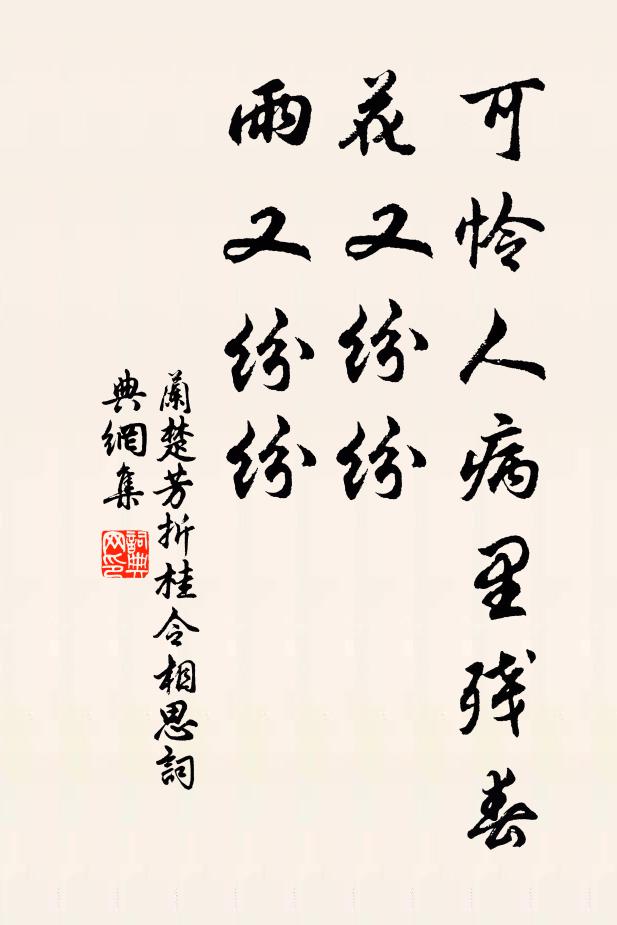 可怜人病里残春
花又纷纷
雨又纷纷
蘭楚芳折桂令相思詞
典網集
詞典网印